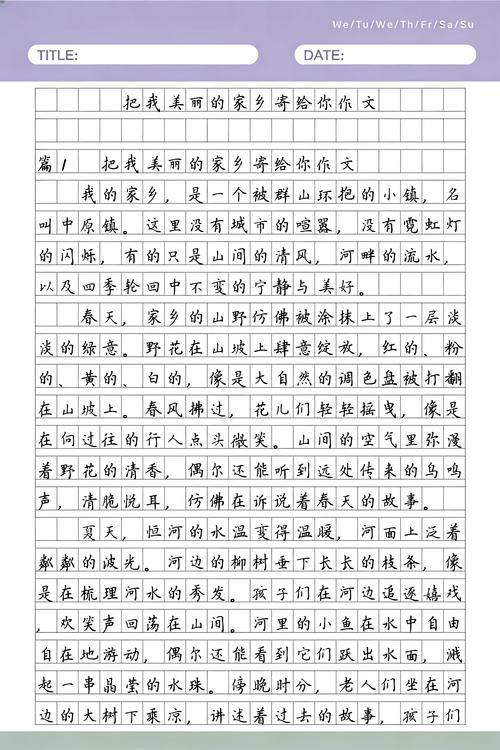 We/Tu/We/Th/Fr/Sa/Su
TITLE: DATE:
把我美丽的家乡寄给你作文
篇1 把我美丽的家乡寄给你作文
我的家乡，是一个被群山环抱的小镇，名
叫中原镇。这里没有城市的喧嚣，没有霓虹灯
的闪烁，有的只是山间的清风，河畔的流水，
以及四季轮回中不变的宁静与美好。
春天，家乡的山野仿佛被涂抹上了一层淡
淡的绿意。野花在山坡上肆意绽放，红的、粉
的、黄的、白的，像是大自然的调色盘被打翻
在山坡上。春风拂过，花儿们轻轻摇曳，像是
在向过往的行人点头微笑。山间的空气里弥漫
着野花的清香，偶尔还能听到远处传来的鸟鸣
声，清脆悦耳，仿佛在诉说着春天的故事。
夏天，恒河的水温变得温暖，河面上泛着
粼粼的波光。河边的柳树垂下长长的枝条，像
是在梳理河水的秀发。孩子们在河边追逐嬉戏
，欢笑声回荡在山间。河里的小鱼在水中自由
自在地游动，偶尔还能看到它们跃出水面，溅
起一串晶莹的水珠。傍晚时分，老人们坐在河
边的大树下乘凉，讲述着过去的故事，孩子们